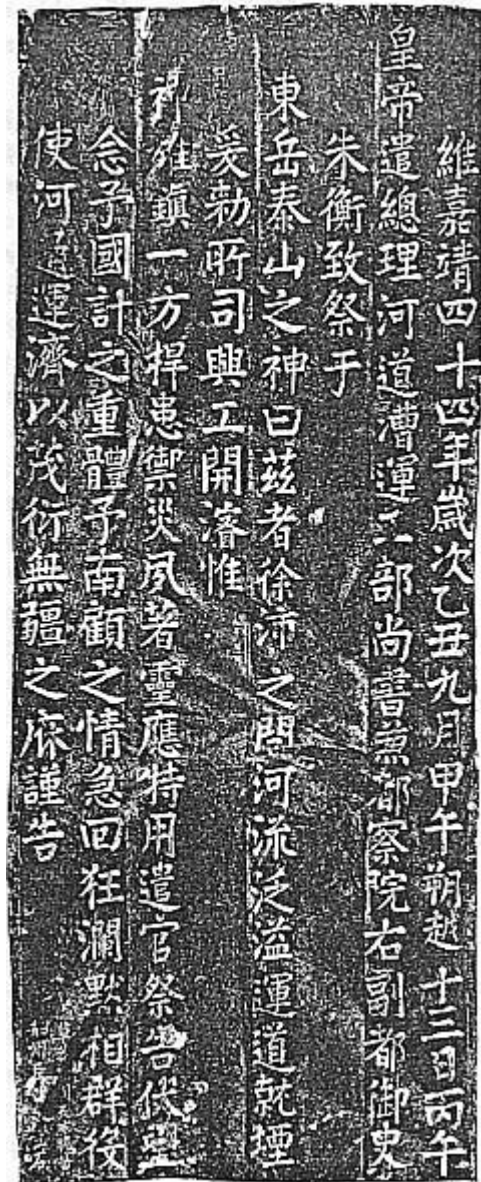 維嘉靖四十四年歲次乙丑九月甲午朔越十三日丙午
皇帝遣總理河道漕運工部尚書兼都察院右副都御史
朱衡致祭于
東岳泰山之神曰茲者徐沛之間河流泛溢運道就堙
爰勑所司興工開濬惟
神雄鎮一方捍患禦災夙著靈應特用遣官祭告伏望
念予國計之重體予南顧之情急回狂瀾默相群後
使河道運濟以茂衍無疆之庥謹告